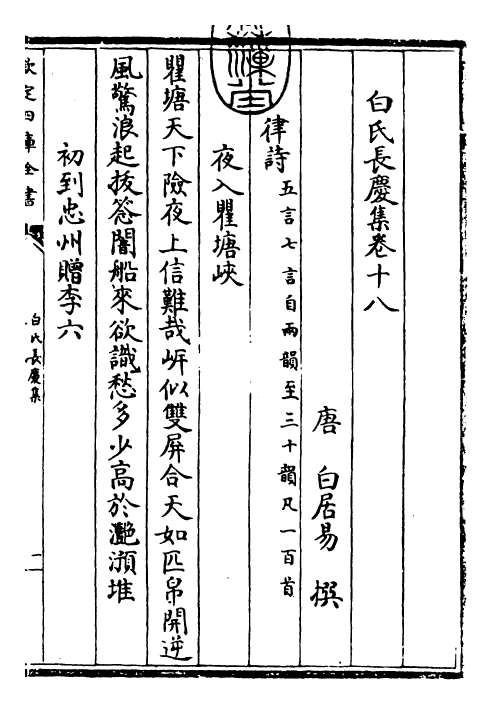 白氏長慶集卷十八
唐 白居易 撰
律詩 五言七言自兩韻至三十韻凡一百首
夜入瞿塘峽
瞿塘天下險夜上信難哉岸似雙屏合天如匹帛開逆
風驚浪起拔闇船來欲識愁多少高於灧澦堆
初到忠州贈李六
欽定四庫全書
白氏長慶集